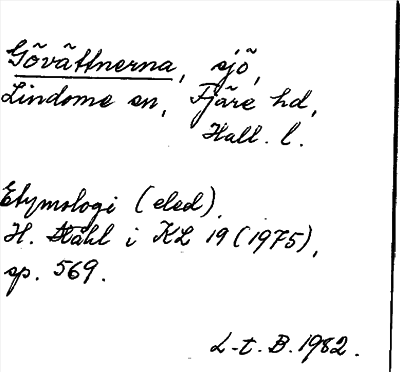 Gövättnerna, sjö,
Lindome sn, Fjäre hd,
Hall. l.
Etymologi (eled).
H. Ståhl i KL 19 (1975),
sp. 569.
L-t. B. 1982.